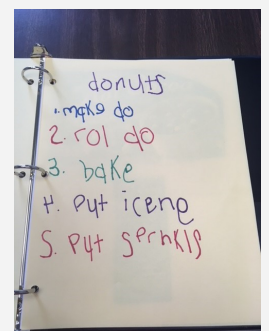 donuts
1. make do
2. rol do
3. bake
4. put iceng
5. put sprnkls